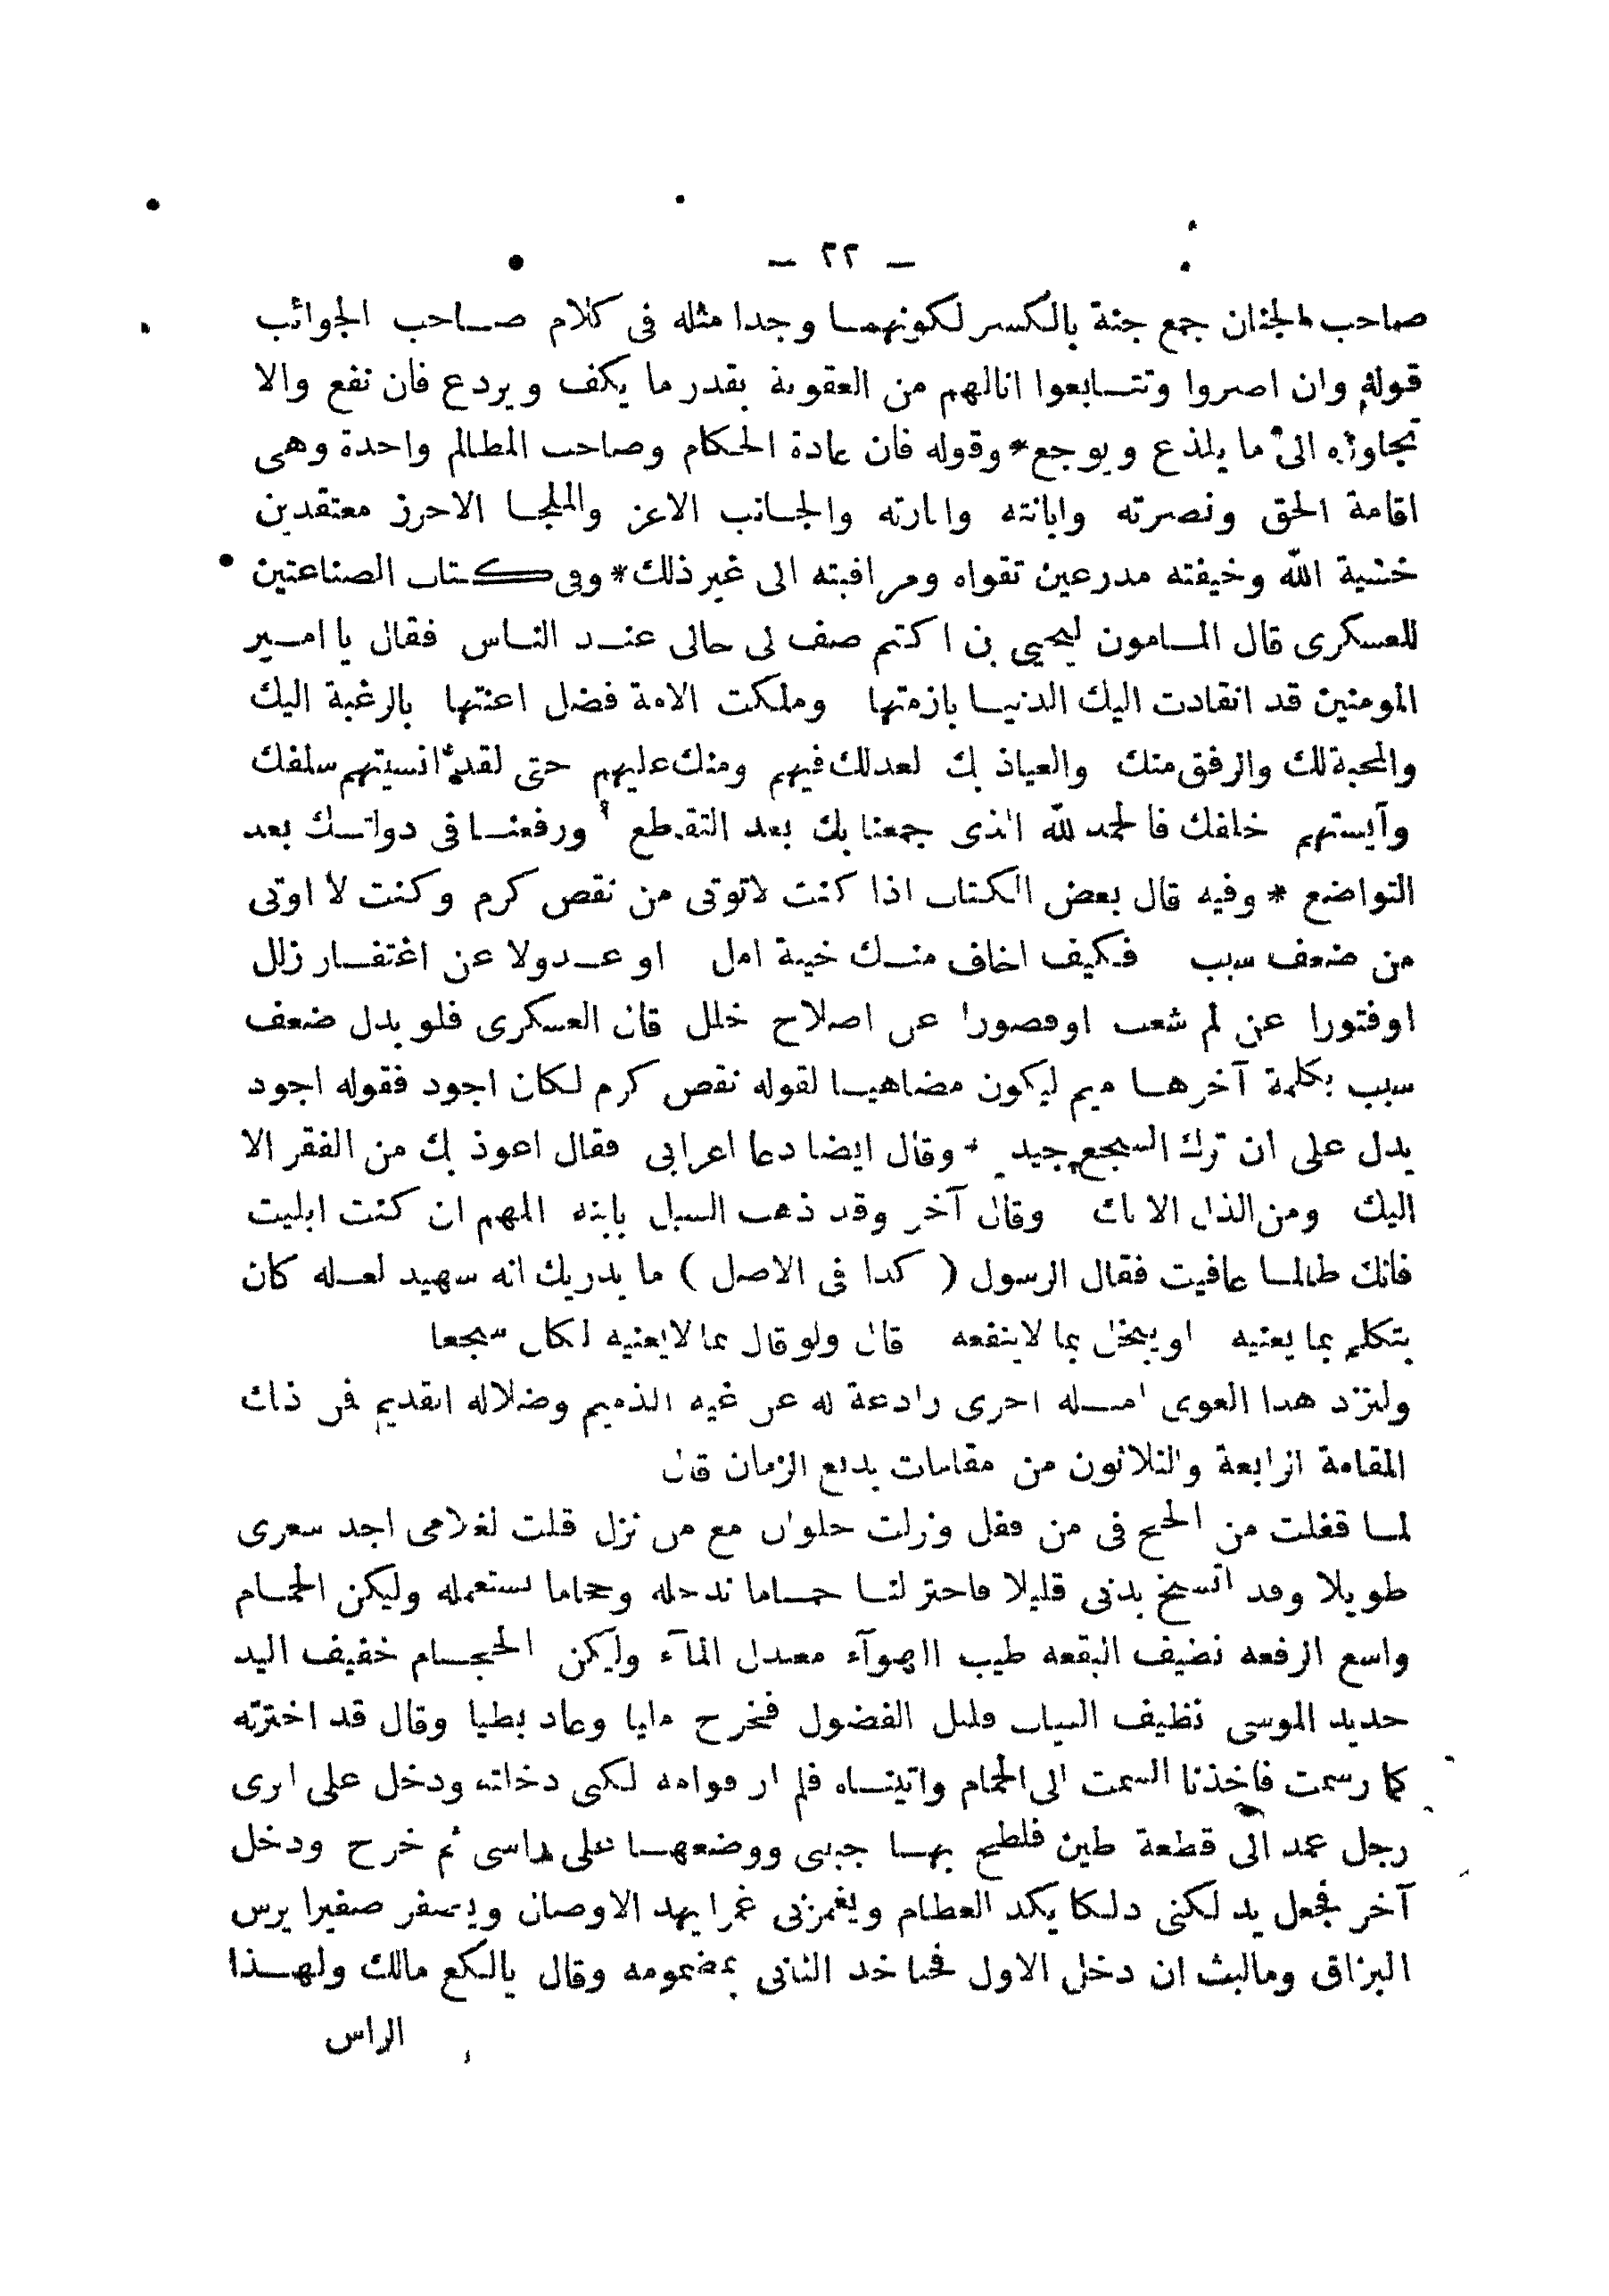 — ٢٢ —
صاحب الجنان جمع جنة بالكسر لكونهما وجدا مثله فى كلام صاحب الجوائب
قوله وان اصروا وتتابعوا انالهم من العقوبة بقدر ما يكف ويردع فان نفع والا
تجاوزه الى ما يلذع ويوجع * وقوله فان عادة الحكام وصاحب المظالم واحدة وهى
اقامة الحق ونصرته وابانته وانارته والجانب الاعز والملجا الاحرز معتقدين
خشية الله وخيفته مدرعين تقواه ومراقبته الى غير ذلك * وفى كتاب الصناعتين
للعسكرى قال المامون ليحيى بن اكتم صف لى حالى عند الناس فقال يا امير
المومنين قد انقادت اليك الدنيا بازمتها وملكت الامة فضل اعنتها بالرغبة اليك
والمحبة لك والرفق منك والعياذ بك لعدلك فيهم ومنك عليهم حتى لقد انسيتهم سلفك
وآيستهم خلفك فالحمد لله الذى جمعنا بك بعد التقطع ورفعنا فى دولتك بعد
التواضع * وفيه قال بعض الكتاب اذا كنت لاتوتى من نقص كرم وكنت لا اوتى
من ضعف سبب فكيف اخاف منك خيبة امل او عدولا عن اغتفار زلل
اوفتورا عن لم شعب اوقصورا عن اصلاح خلل قال العسكرى فلو بدل ضعف
سبب بكلمة آخرها ميم ليكون مضاهيا لقوله نقص كرم لكان اجود فقوله اجود
يدل على ان ترك السجع جيد * وقال ايضا دعا اعرابى فقال اعوذ بك من الفقر الا
اليك ومن الذل الا بك وقال آخر وقد ذهب السيل بابنه اللهم ان كنت ابليت
فانك طالما عافيت فقال الرسول ( كذا فى الاصل ) ما يدريك انه شهيد لعله كان
يتكلم بما يعنيه او يبخل بما لاينفعه قال ولو قال بما لايعنيه لكان سجعا
ولنزد هذا الغوى امثله اخرى رادعة له عن غيه الذميم وضلاله القديم فمن ذلك
المقامة الرابعة والثلاثون من مقامات بديع الزمان قال
لما قفلت من الحج فى من قفل ونزلت حلوان مع من نزل قلت لغلامى اجد شعرى
طويلا وقد اتسخ بدنى قليلا فاختر لنا حماما ندخله وحجاما نستعمله وليكن الحمام
واسع الرقعه نضيف البقعه طيب الهوآء معتدل المآء وليكن الحجام خفيف اليد
حديد الموسى نظيف الثياب قليل الفضول فخرج مليا وعاد بطيا وقال قد اخترته
كما رسمت فاخذنا السمت الى الحمام واتيناه فلم ار قوامه لكنى دخلته ودخل على اثرى
رجل عمد الى قطعة طين فلطخ بها جبينى ووضعها على راسى ثم خرج ودخل
آخر فجعل يدلكنى دلكا يكد العظام ويغمزنى غمزا يهد الاوصال ويصفر صفيرا يرس
البزاق ومالبث ان دخل الاول فحيا خد الثانى بمضمومه وقال يالكع مالك ولهذا
الراس